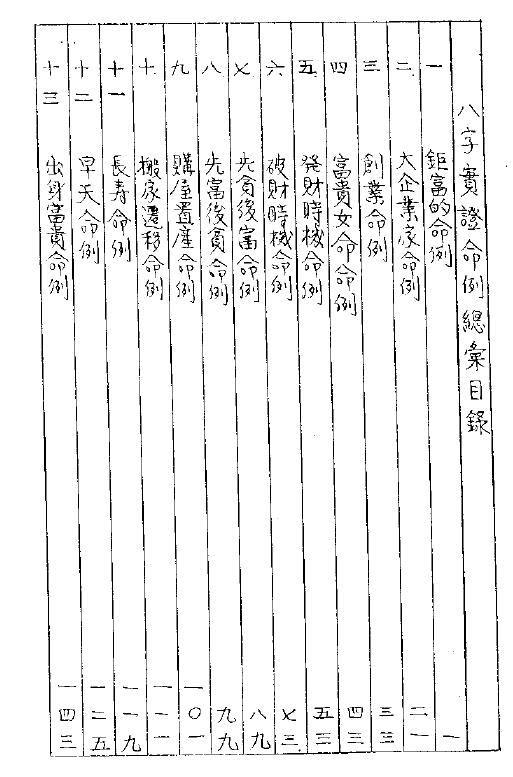 八字實證命例總彙目錄
一 鉅富的命例 一
二 大企業家命例 二一
三 創業命例 三三
四 富貴女命命例 四三
五 発財時機命例 五三
六 破財時機命例 七三
七 先貧後富命例 八九
八 先富後貧命例 九九
九 購屋置産命例 一〇一
十 搬家遷移命例 一一一
十一 長寿命例 一一九
十二 早夭命例 一二五
十三 出身富貴命例 一四三